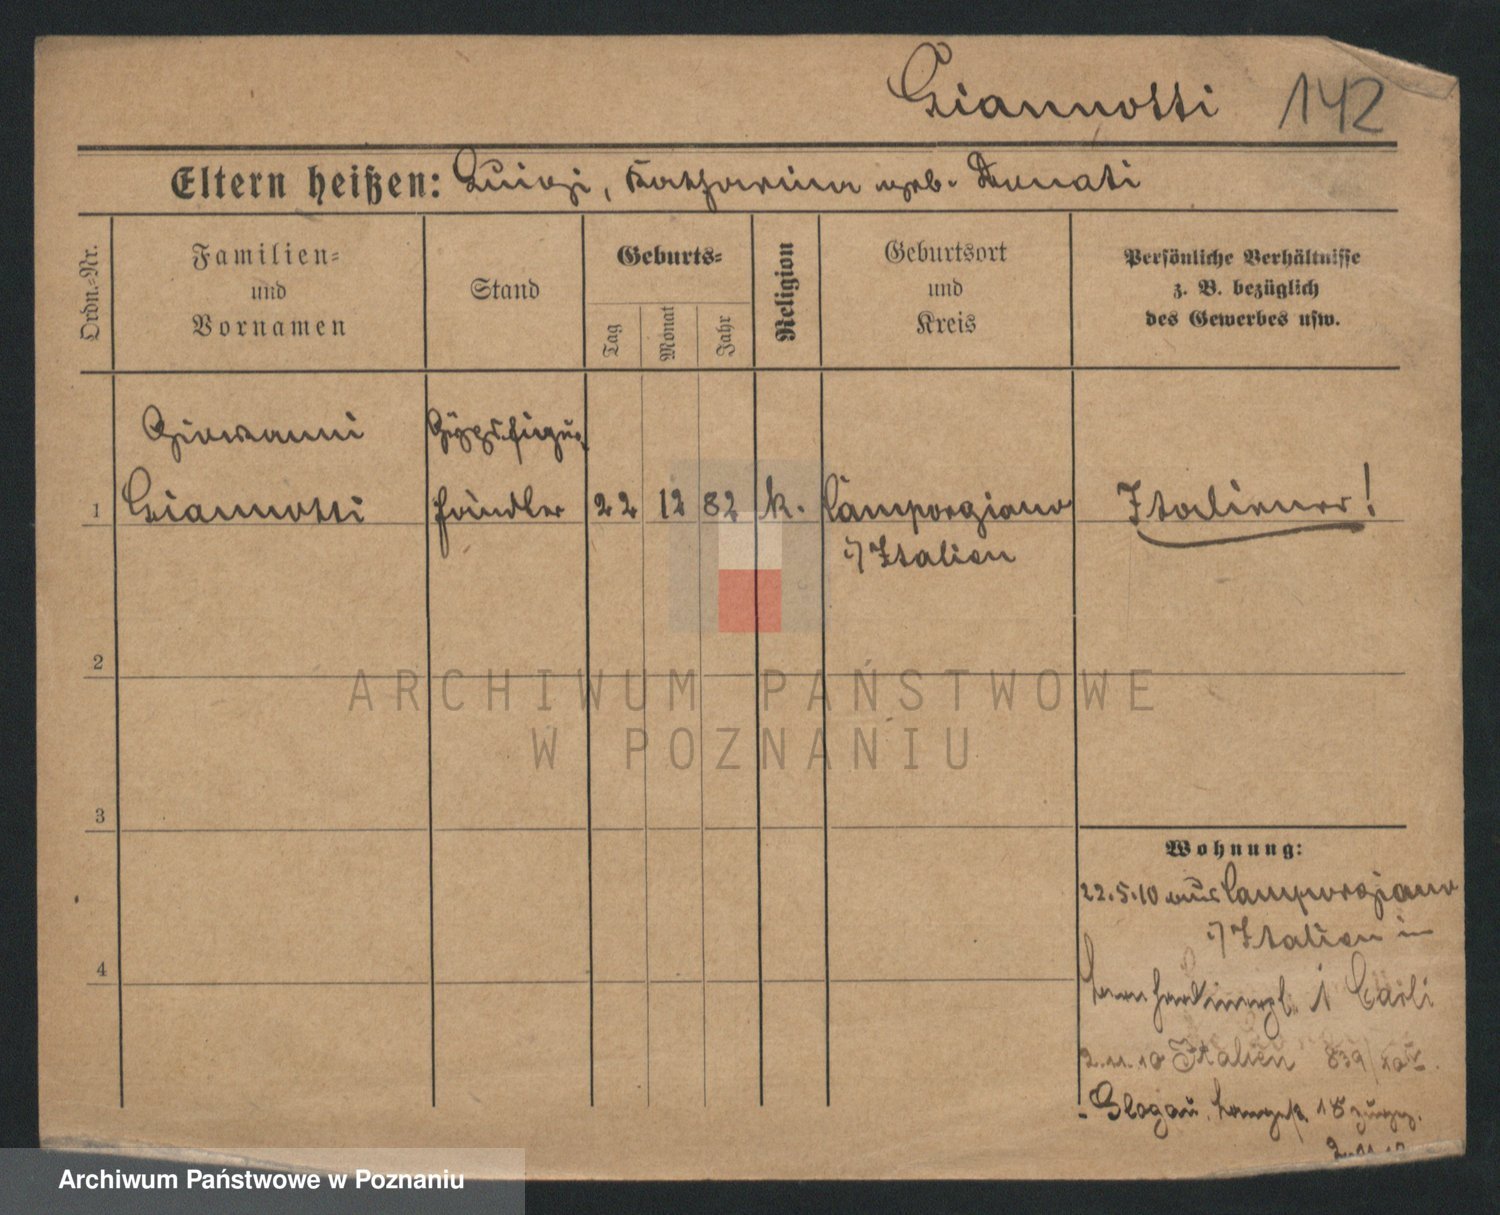 Giannotti 142
Eltern heißen: Luigi, Katharina geb. Donati
Ordn.-Nr.
Familien-
und
Vornamen
Stand
Geburts-
Tag
Monat
Jahr
Religion
Geburtsort
und
Kreis
Persönliche Verhältnisse
z. B. bezüglich
des Gewerbes usw.
Giovanni
Gypsfigur
1 Giannotti händler 22 12 82 k. Camporgiano Italiener!
i/ Italien
2
3
4
Wohnung:
22.5.10 aus Camporgiano
i/ Italien in
1 Carli
2.11.10 Italien 839/
Glogau, Langestr. 18
ARCHIWUM PAŃSTWOWE
W POZNANIU
Archiwum Państwowe w Poznaniu